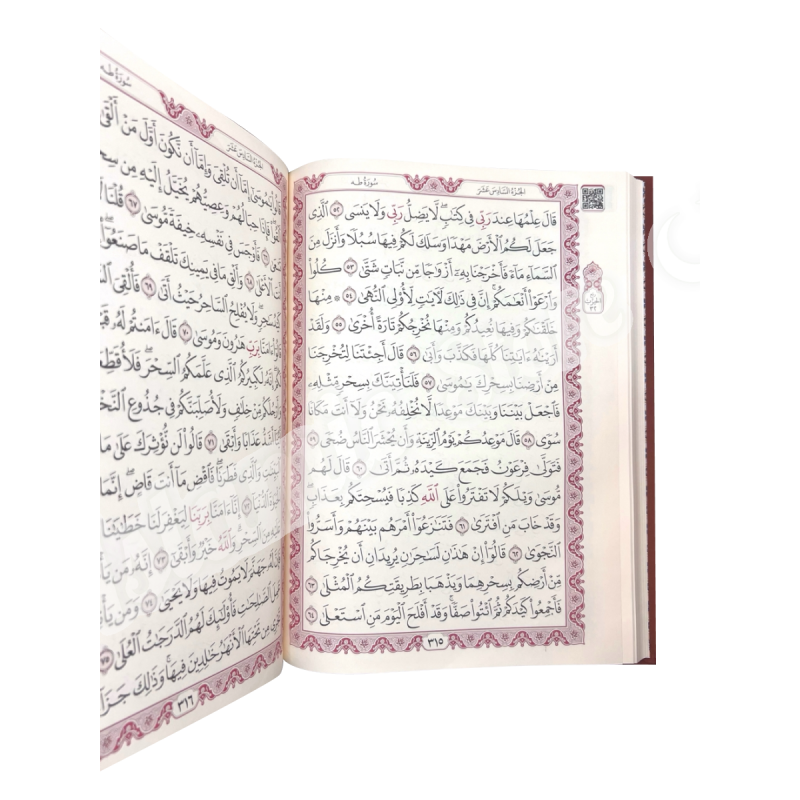 الجُزْءُ السَّادِسَ عَشَرَ
سُورَةُ طه
قَالَ عِلْمُهَا عِندَ رَبِّي فِي كِتَٰبٍۖ لَّا يَضِلُّ رَبِّي وَلَا يَنسَى ٥٢ ٱلَّذِي
جَعَلَ لَكُمُ ٱلْأَرْضَ مَهْدًا وَسَلَكَ لَكُمْ فِيهَا سُبُلًا وَأَنزَلَ مِنَ
ٱلسَّمَآءِ مَآءً فَأَخْرَجْنَا بِهِۦٓ أَزْوَٰجًا مِّن نَّبَاتٍ شَتَّىٰ ٥٣ كُلُوا۟
وَٱرْعَوْا۟ أَنْعَٰمَكُمْۗ إِنَّ فِي ذَٰلِكَ لَءَايَٰتٍ لِّأُو۟لِي ٱلنُّهَىٰ ٥٤ مِنْهَا
خَلَقْنَٰكُمْ وَفِيهَا نُعِيدُكُمْ وَمِنْهَا نُخْرِجُكُمْ تَارَةً أُخْرَىٰ ٥٥ وَلَقَدْ
أَرَيْنَٰهُ ءَايَٰتِنَا كُلَّهَا فَكَذَّبَ وَأَبَىٰ ٥٦ قَالَ أَجِئْتَنَا لِتُخْرِجَنَا
مِنْ أَرْضِنَا بِسِحْرِكَ يَٰمُوسَىٰ ٥٧ فَلَنَأْتِيَنَّكَ بِسِحْرٍ مِّثْلِهِۦ
فَٱجْعَلْ بَيْنَنَا وَبَيْنَكَ مَوْعِدًا لَّا نُخْلِفُهُۥ نَحْنُ وَلَآ أَنتَ مَكَانًا
سُوًى ٥٨ قَالَ مَوْعِدُكُمْ يَوْمُ ٱلزِّينَةِ وَأَن يُحْشَرَ ٱلنَّاسُ ضُحًى ٥٩
فَتَوَلَّىٰ فِرْعَوْنُ فَجَمَعَ كَيْدَهُۥ ثُمَّ أَتَىٰ ٦٠ قَالَ لَهُم
مُّوسَىٰ وَيْلَكُمْ لَا تَفْتَرُوا۟ عَلَى ٱللَّهِ كَذِبًا فَيُسْحِتَكُم بِعَذَابٍۖ
وَقَدْ خَابَ مَنِ ٱفْتَرَىٰ ٦١ فَتَنَٰزَعُوٓا۟ أَمْرَهُم بَيْنَهُمْ وَأَسَرُّوا۟
ٱلنَّجْوَىٰ ٦٢ قَالُوٓا۟ إِنْ هَٰذَٰنِ لَسَٰحِرَٰنِ يُرِيدَانِ أَن يُخْرِجَاكُم
مِّنْ أَرْضِكُم بِسِحْرِهِمَا وَيَذْهَبَا بِطَرِيقَتِكُمُ ٱلْمُثْلَىٰ ٦٣
فَأَجْمِعُوا۟ كَيْدَكُمْ ثُمَّ ٱئْتُوا۟ صَفًّاۚ وَقَدْ أَفْلَحَ ٱلْيَوْمَ مَنِ ٱسْتَعْلَىٰ ٦٤
٣١٥
الجُزْءُ السَّادِسَ عَشَرَ
سُورَةُ طه
يَٰمُوسَىٰٓ إِمَّآ أَن تُلْقِيَ وَإِمَّآ أَن نَّكُونَ أَوَّلَ مَنْ أَلْقَىٰ
فَإِذَا حِبَالُهُمْ وَعِصِيُّهُمْ يُخَيَّلُ إِلَيْهِ مِن
فَأَوْجَسَ فِي نَفْسِهِۦ خِيفَةً مُّوسَىٰ ٦٧ قُلْنَا
ٱلْأَعْلَىٰ ٦٨ وَأَلْقِ مَا فِي يَمِينِكَ تَلْقَفْ مَا صَنَعُوٓا۟
سَٰحِرٍۖ وَلَا يُفْلِحُ ٱلسَّاحِرُ حَيْثُ أَتَىٰ ٦٩ فَأُلْقِيَ
ءَامَنَّا بِرَبِّ هَٰرُونَ وَمُوسَىٰ ٧٠ قَالَ ءَامَنتُمْ لَهُۥ
لَكَبِيرُكُمُ ٱلَّذِي عَلَّمَكُمُ ٱلسِّحْرَۖ
مِّنْ خِلَٰفٍ وَلَأُصَلِّبَنَّكُمْ فِي جُذُوعِ
أَشَدُّ عَذَابًا وَأَبْقَىٰ ٧١ قَالُوا۟ لَن نُّؤْثِرَكَ عَلَىٰ مَا
وَٱلَّذِي فَطَرَنَاۖ فَٱقْضِ مَآ أَنتَ قَاضٍۖ إِنَّمَا
ٱلدُّنْيَآ ٧٢ إِنَّآ ءَامَنَّا بِرَبِّنَا لِيَغْفِرَ لَنَا خَطَٰيَٰنَا
مِنَ ٱلسِّحْرِۗ وَٱللَّهُ خَيْرٌ وَأَبْقَىٰٓ ٧٣ إِنَّهُۥ مَن
جَهَنَّمَ لَا يَمُوتُ فِيهَا وَلَا يَحْيَىٰ ٧٤ وَمَن
ٱلصَّٰلِحَٰتِ فَأُو۟لَٰٓئِكَ لَهُمُ ٱلدَّرَجَٰتُ ٱلْعُلَىٰ ٧٥
ٱلْأَنْهَٰرُ خَٰلِدِينَ فِيهَاۚ وَذَٰلِكَ
٣١٦